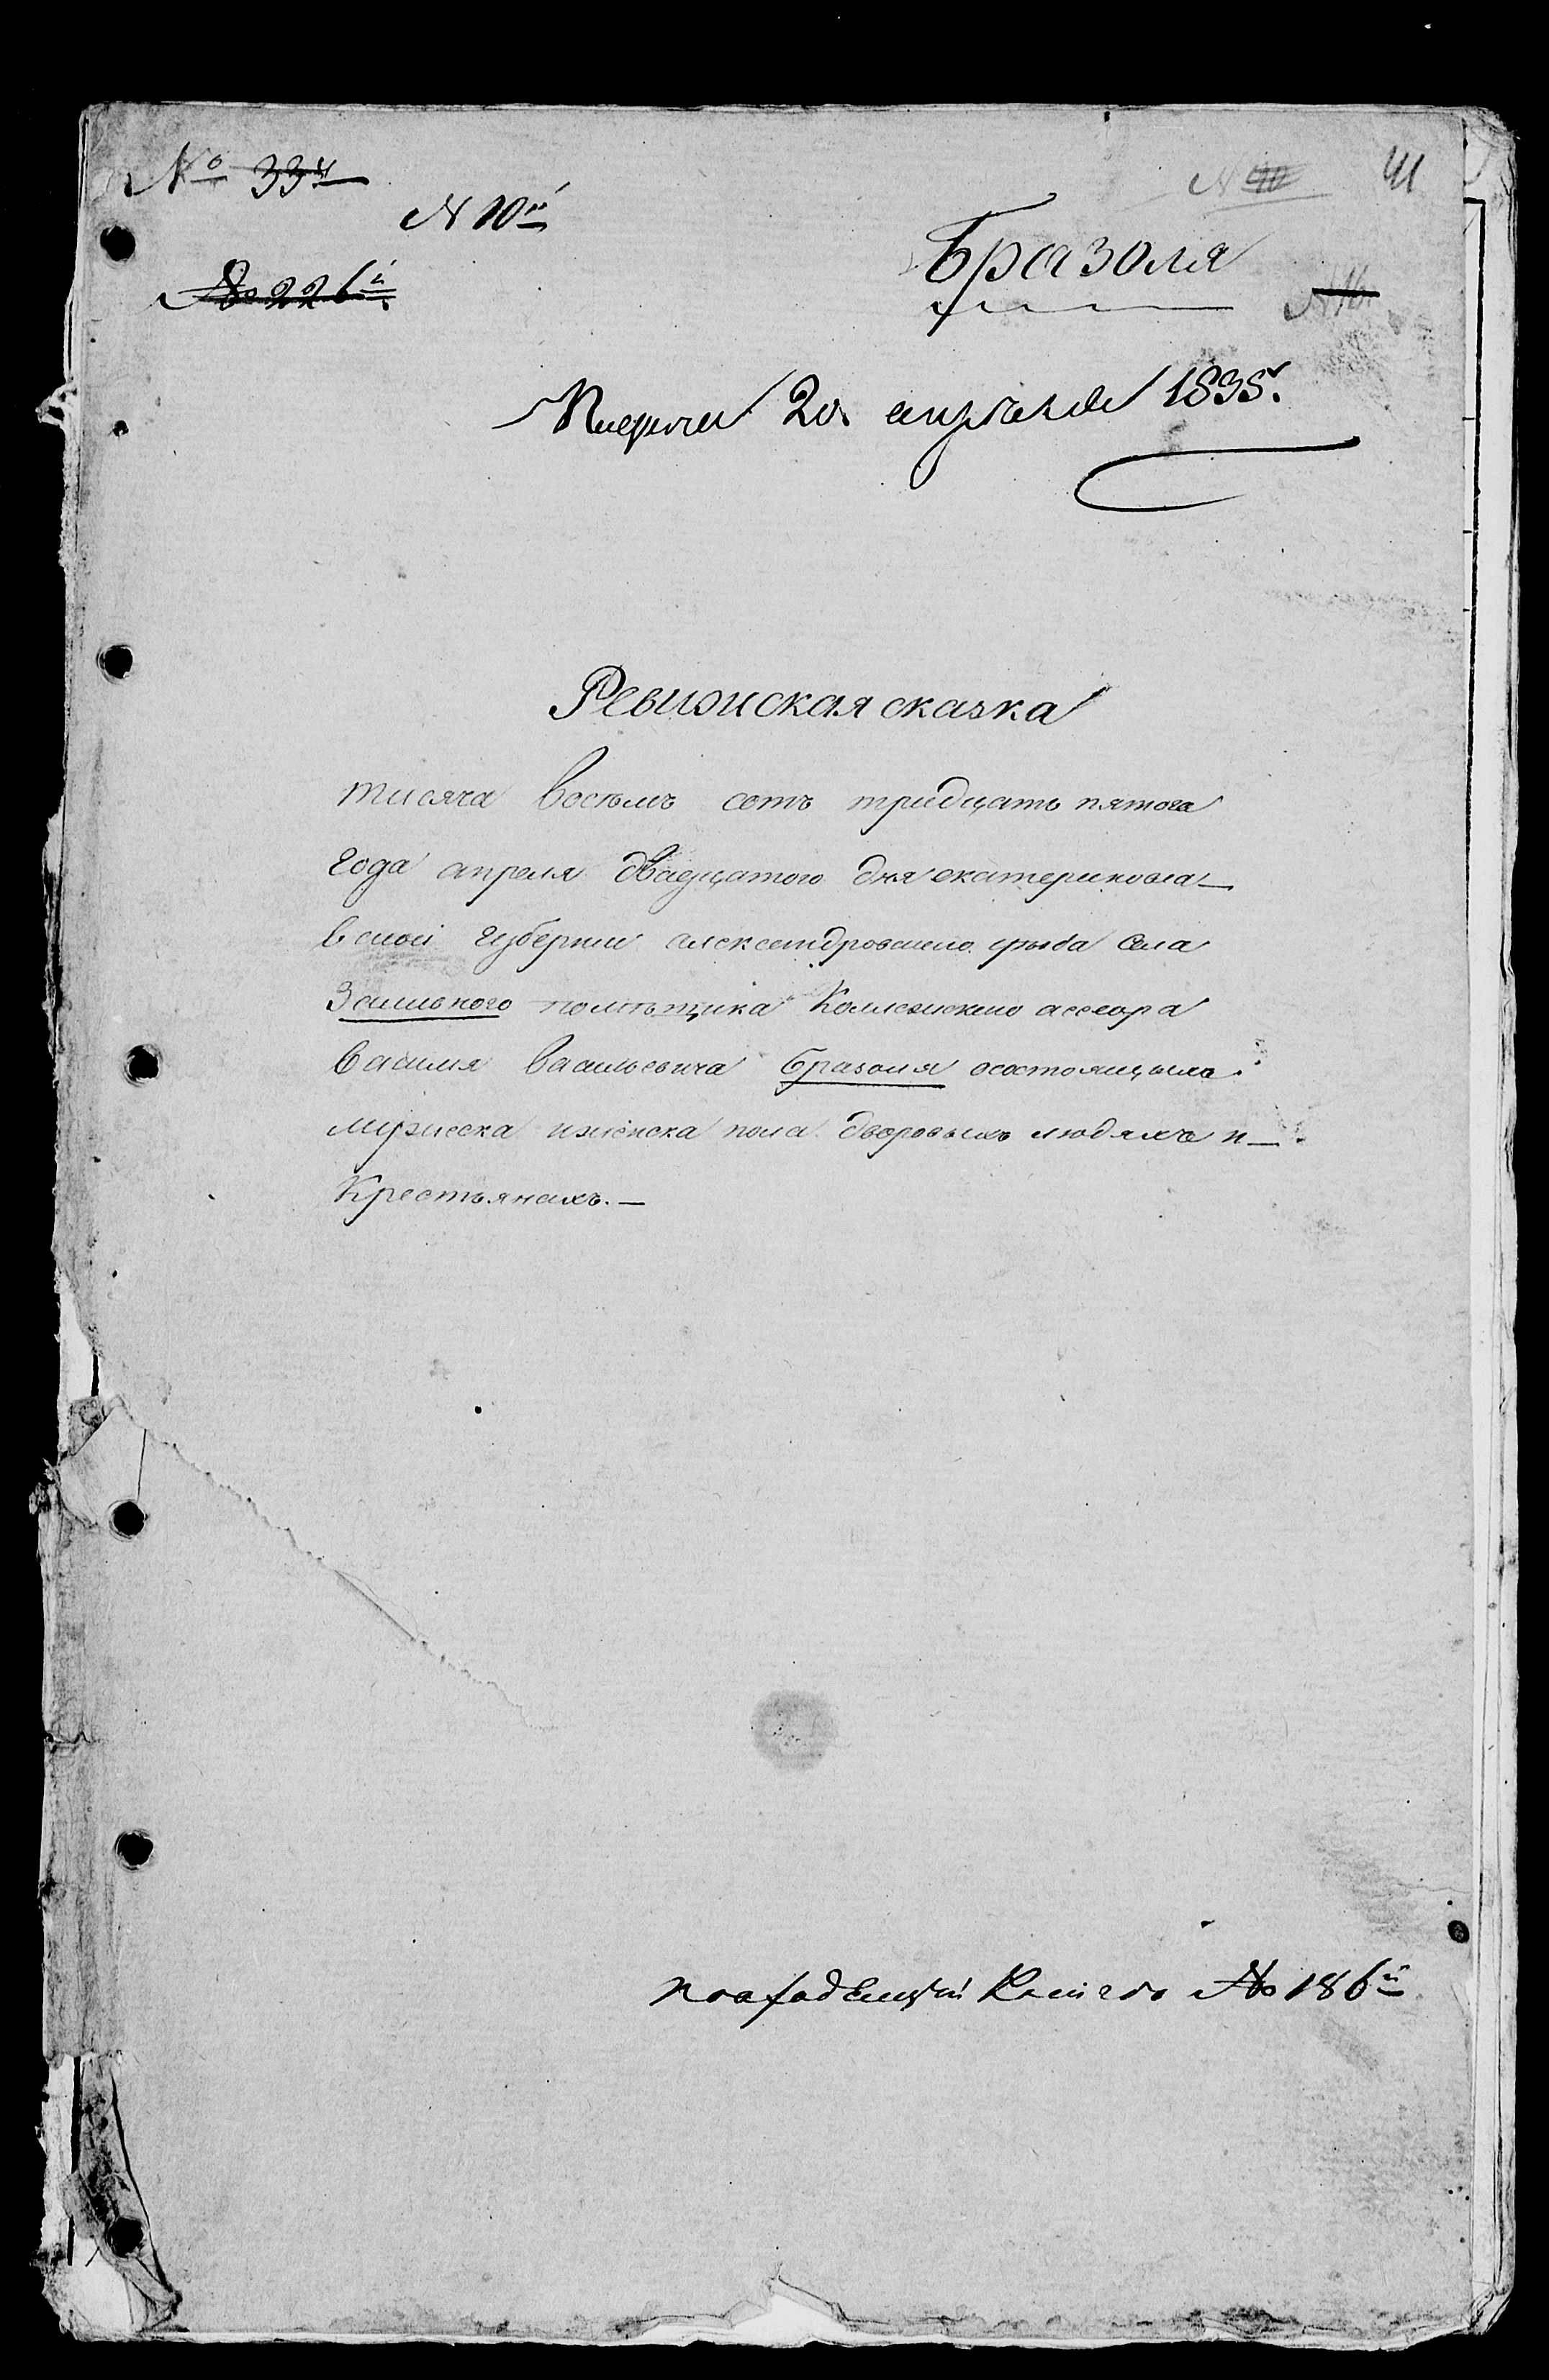 № 33й
N 10й
№ 226й
N 40
41
Бразоля
N 16
20 апреля 1835.
Ревизская сказка
тисяча восемъ сотъ тридцать пятого
года апреля двадцатого дня екатериносла-
вской губернии александровского уезда села
помѣщика Колежского ассесора
василия васильевича бразоля осостоящыхъ
мужеска иженска пола дворовыхъ людяхъ и-
Крестьянахъ.-
№ 186й